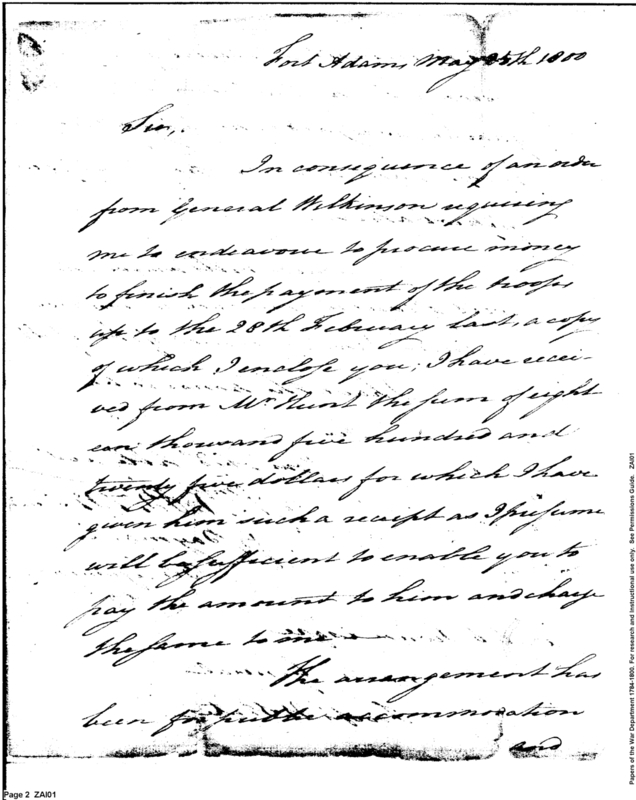 Fort Adams May 25th 1800
Sir,
In consequence of an order
from General Wilkinson requiring
me to endeavour to procure money
to finish the payment of the troops
up to the 28th February last, a copy
of which I enclose you; I have recei-
ved from Mr. Hunt the sum of eight
een thousand five hundred and
twenty five dollars for which I have
given him such a receipt as I presume
will be sufficient to enable you to
pay the amount to him and charge
the same to me
The arrangement has
been for public accommodation
and
Page 2 ZAI01
Papers of the War Department 1784-1800. For research and instructional use only. See Permissions Guide. ZAI01